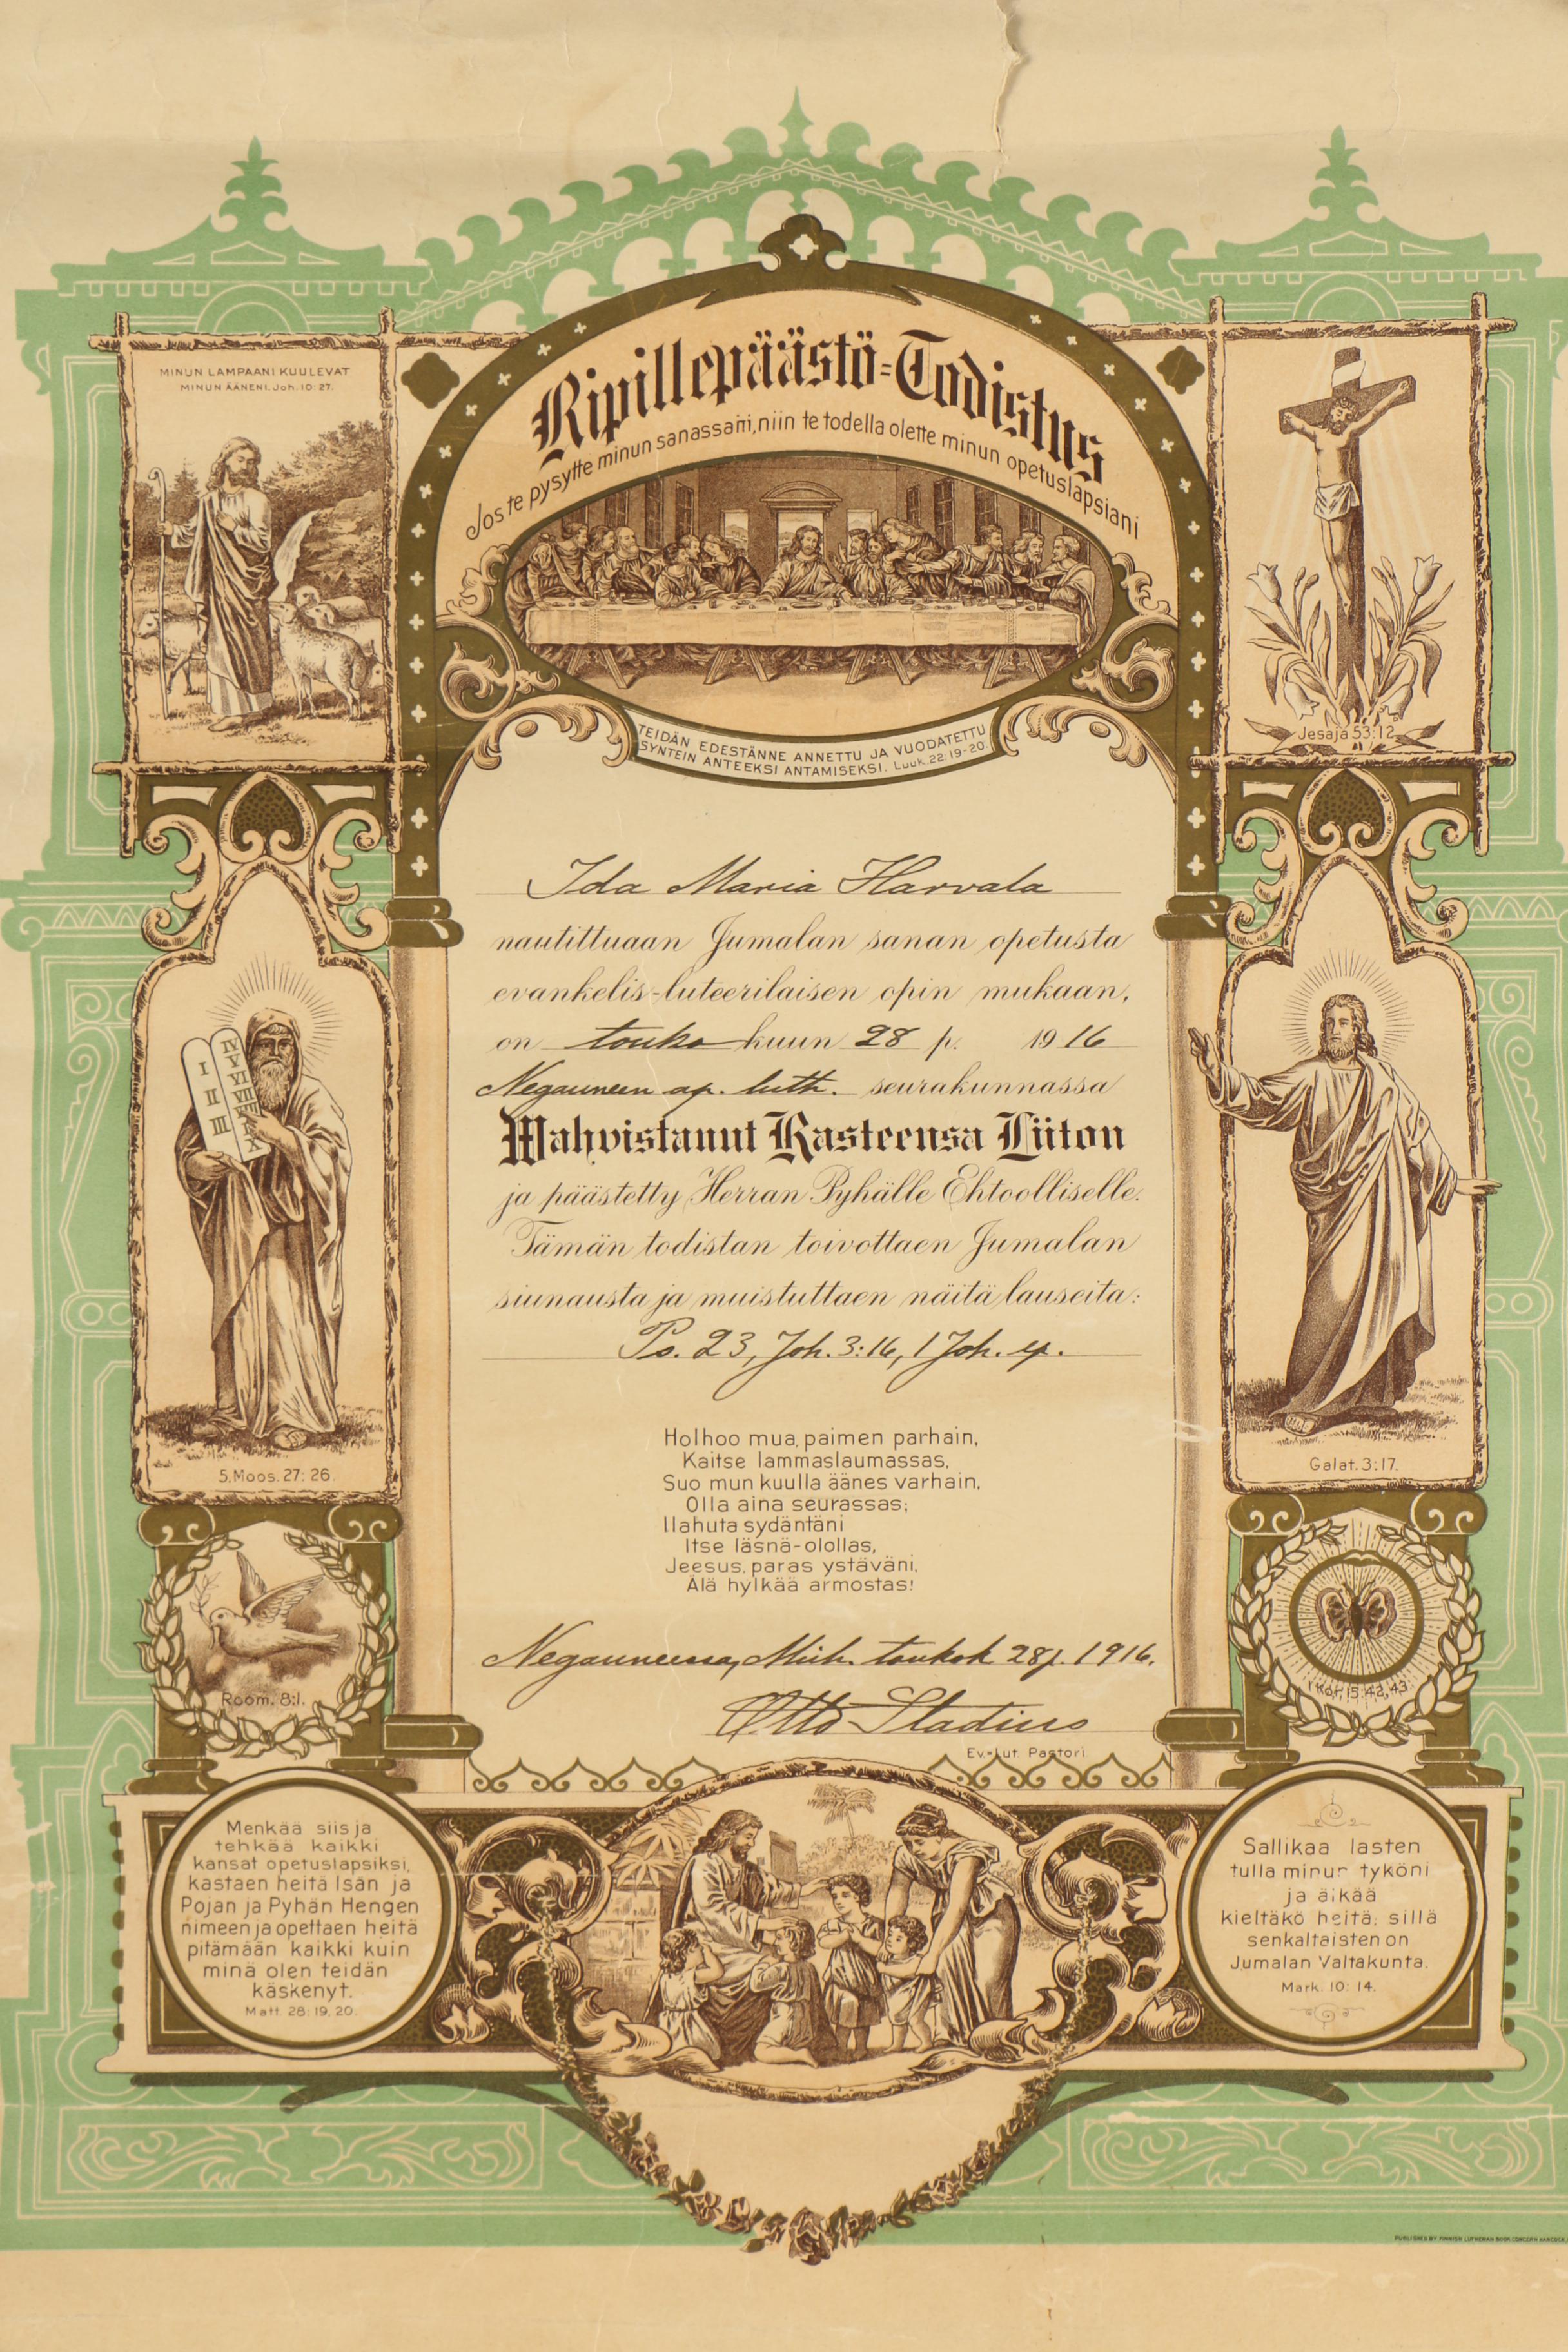 Ripillepäästö=Todistus
Jos te pysytte minun sanassani, niin te todella olette minun opetuslapsiani
MINUN LAMPAANI KUULEVAT
MINUN ÄÄNENI. Joh. 10:27.
Jesaja 53:12
TEIDÄN EDESTÄNNE ANNETTU JA VUODATETTU
SYNTEIN ANTEEKSI ANTAMISEKSI. Luuk. 22:19-20.
Ida Maria Harvala
nautittuaan Jumalan sanan opetusta
evankelis-luteerilaisen opin mukaan,
on touko kuun 28 p. 1916
Negauneen ap. luth. seurakunnassa
Wahvistanut Kasteensa Liiton
ja päästetty Herran Pyhälle Ehtoolliselle.
Tämän todistan toivottaen Jumalan
siunausta ja muistuttaen näitä lauseita:
Ps. 23, Joh. 3:16, 1 Joh. ep.
I II III IV V VI VII VIII IX X
5. Moos. 27: 26.
Galat. 3:17.
Holhoo mua, paimen parhain,
Kaitse lammaslaumassas,
Suo mun kuulla äänes varhain,
Olla aina seurassas;
Ilahuta sydäntäni
Itse läsnä-olollas,
Jeesus, paras ystäväni,
Älä hylkää armostas!
Room. 8:1.
1 Kor. 15:42,43.
Negauneessa, Mich. toukok 28 p. 1916.
Otto Stadius
Ev.-Lut. Pastori
Menkää siis ja
tehkää kaikki
kansat opetuslapsiksi,
kastaen heitä Isän ja
Pojan ja Pyhän Hengen
nimeen ja opettaen heitä
pitämään kaikki kuin
minä olen teidän
käskenyt.
Matt 28: 19. 20.
Sallikaa lasten
tulla minun tyköni
ja älkää
kieltäkö heitä; sillä
senkaltaisten on
Jumalan Valtakunta.
Mark. 10: 14.
PUBLISHED BY FINNISH LUTHERAN BOOK CONCERN HANCOCK